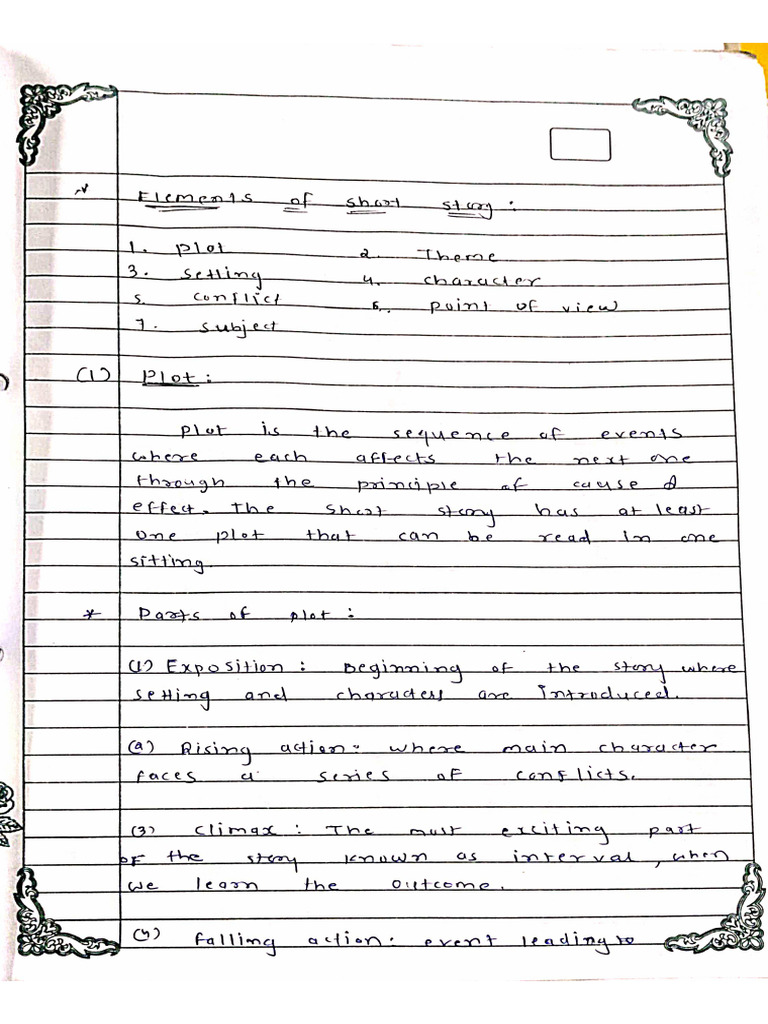 Elements of short story :
1. Plot 2. Theme
3. setting 4. character
5. conflict 6. point of view
7. subject
(1) Plot :
Plot is the sequence of events
where each affects the next one
through the principle of cause &
effect. The short story has at least
one plot that can be read in one
sitting.
* Parts of plot :
(1) Exposition : Beginning of the story where
setting and characters are introduced.
(2) Rising action: where main character
faces a series of conflicts.
(3) climax : The most exciting part
of the story known as interval, when
we learn the outcome.
(4) falling action: event leading to